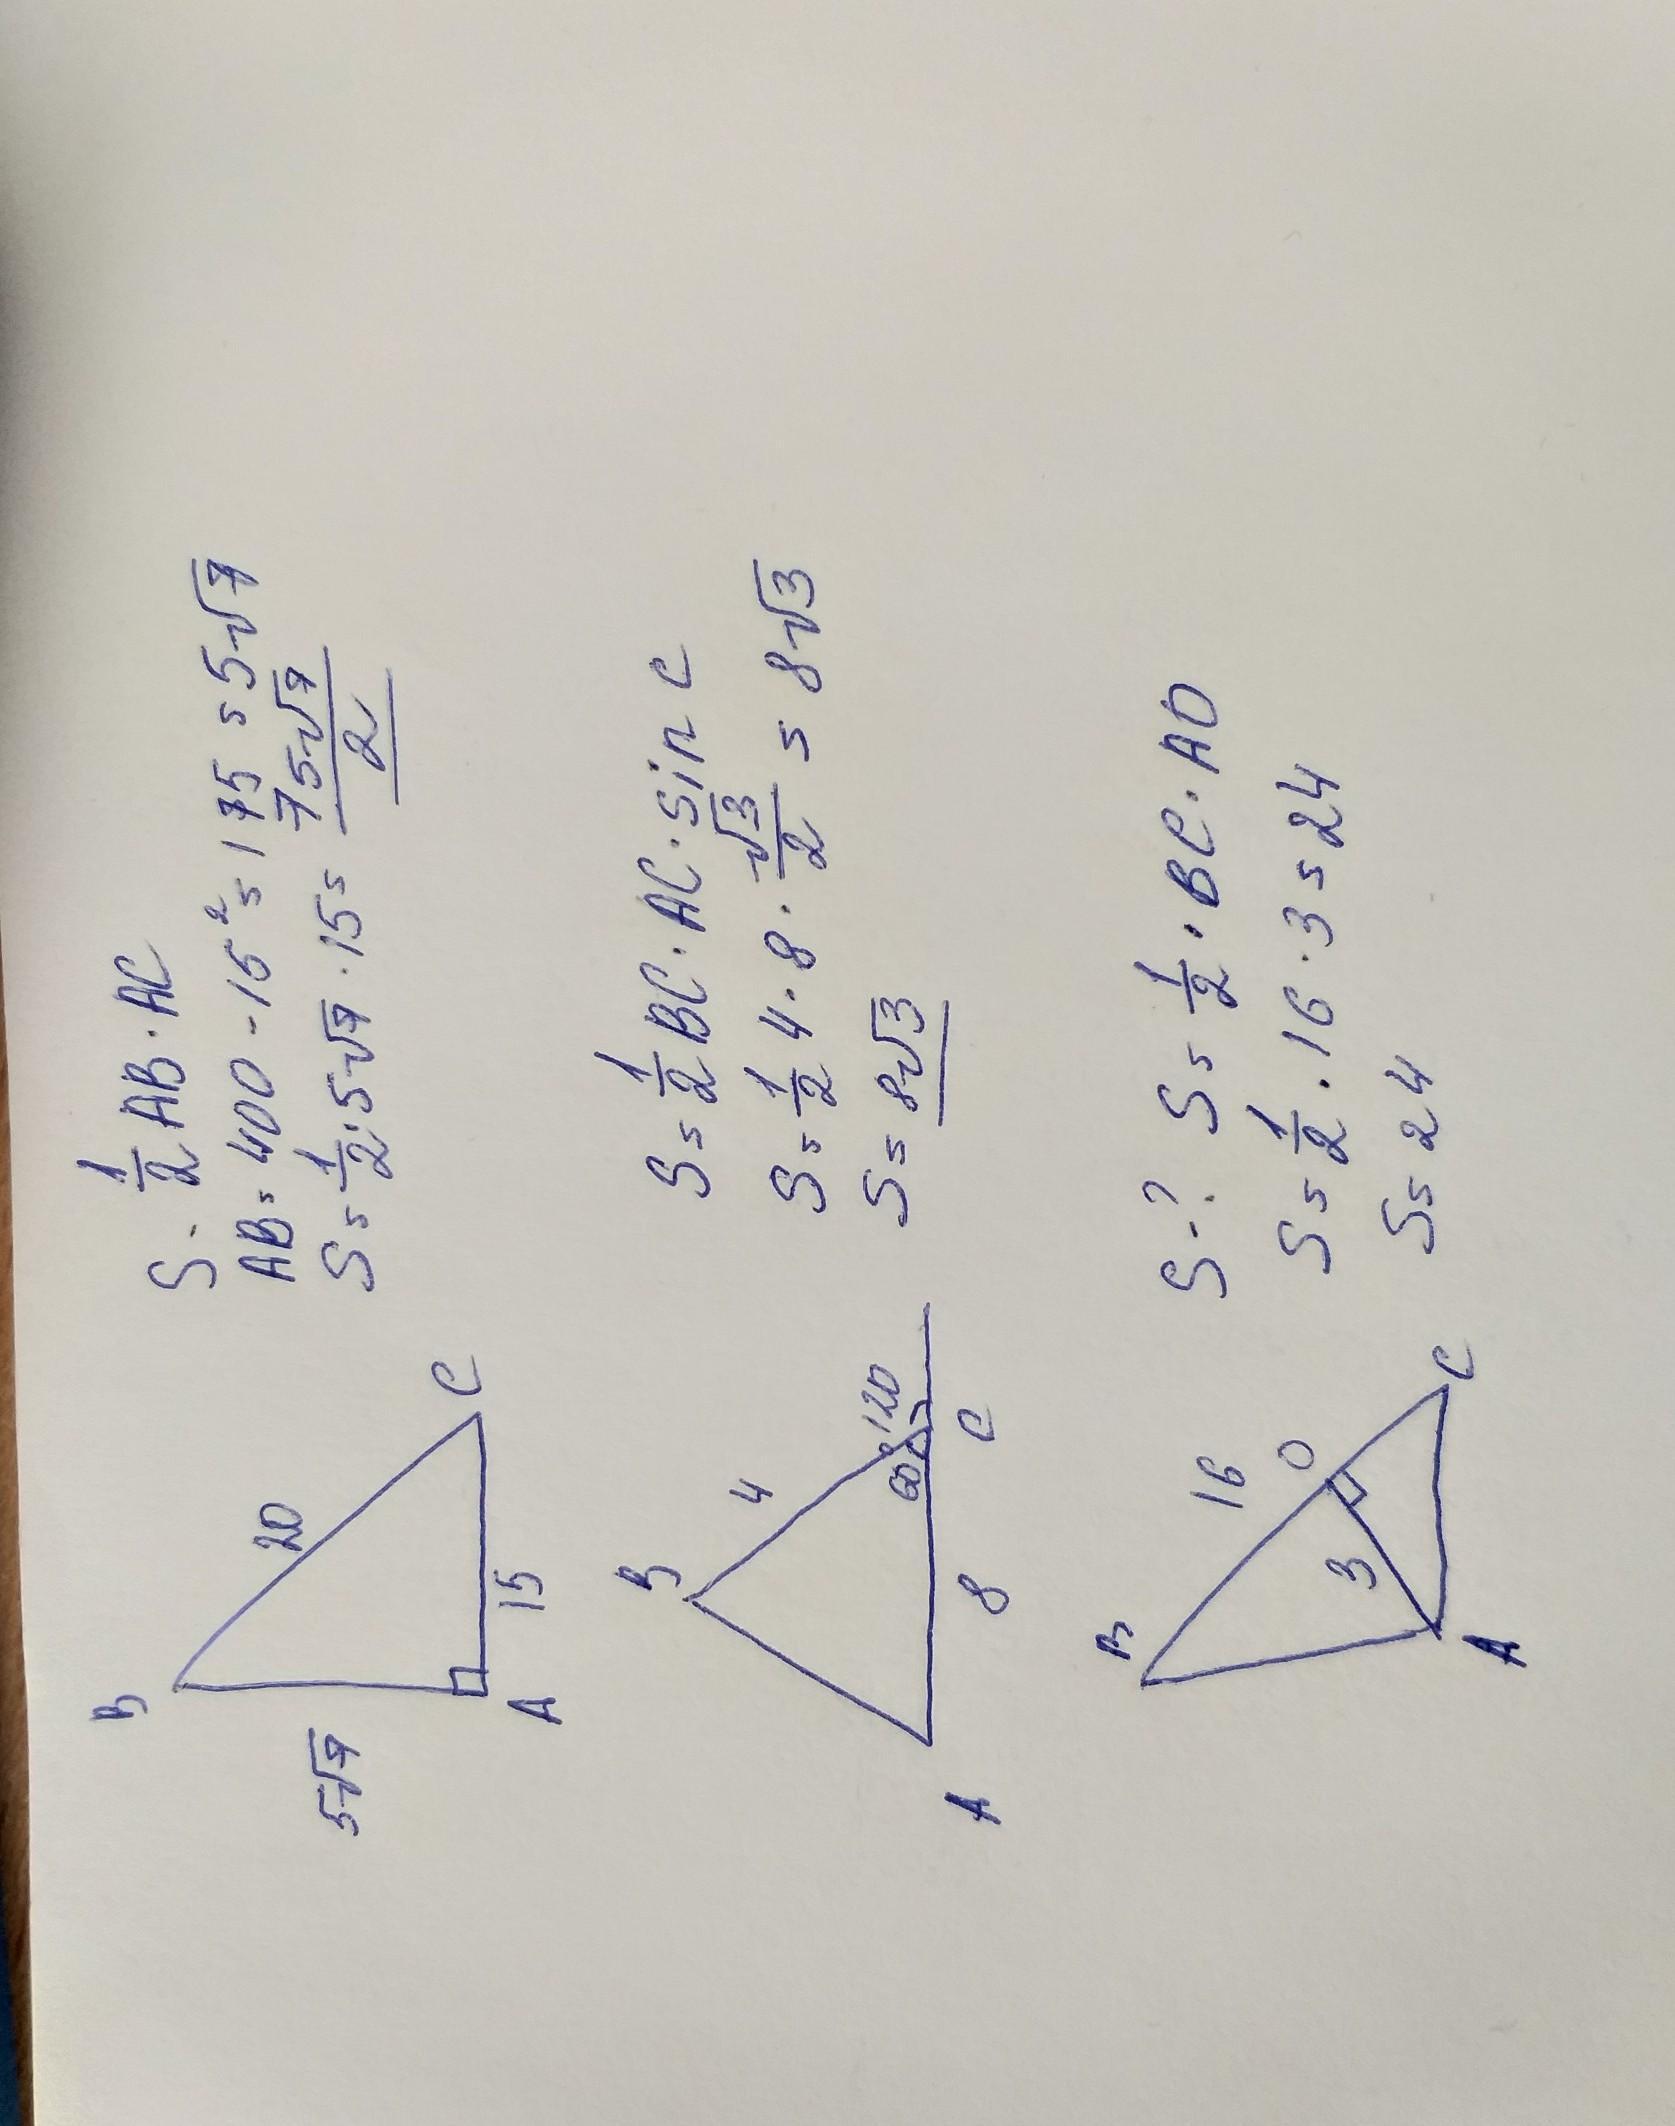 B
20
5√7
A
15
C
S - 1/2 AB · AC
AB = 400 - 15² = 175 = 5√7
S = 1/2 · 5√7 · 15 = 75√7/2
B
4
60
120
A
8
C
S = 1/2 BC · AC · sin C
S = 1/2 4 · 8 · √3/2 = 8√3
S = 8√3
B
16
D
3
A
C
S - ? S = 1/2 · BC · AD
S = 1/2 · 16 · 3 = 24
S = 24